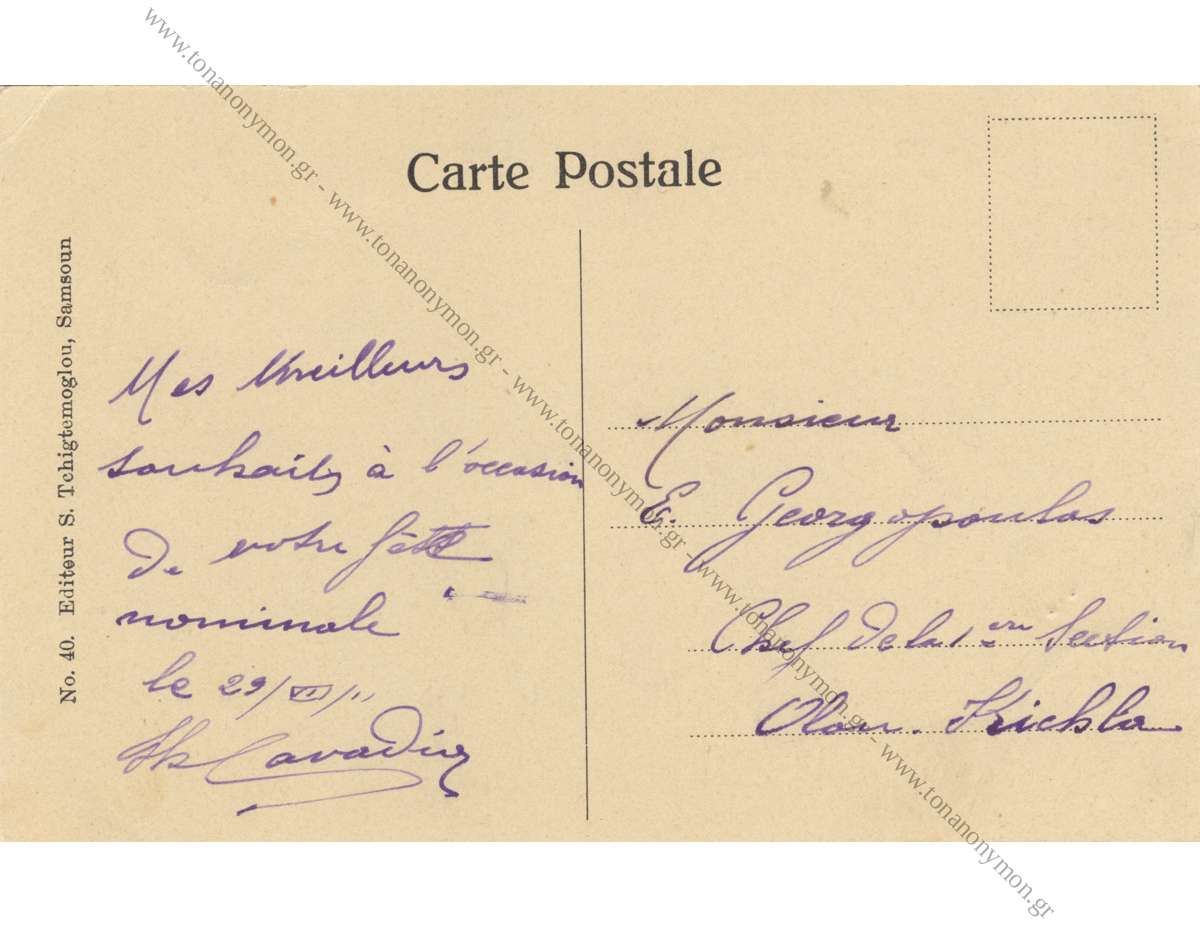 Carte Postale
No. 40. Editeur S. Tchigtemoglou, Samsoun
Mes meilleurs
souhaits à l'occasion
de votre fête
nominale
le 29/VI/11
Monsieur
E. Georgopoulos
Chef de la 1ère Section
www.tonanonymon.gr - www.tonanonymon.gr - www.tonanonymon.gr - www.tonanonymon.gr - www.tonanonymon.gr